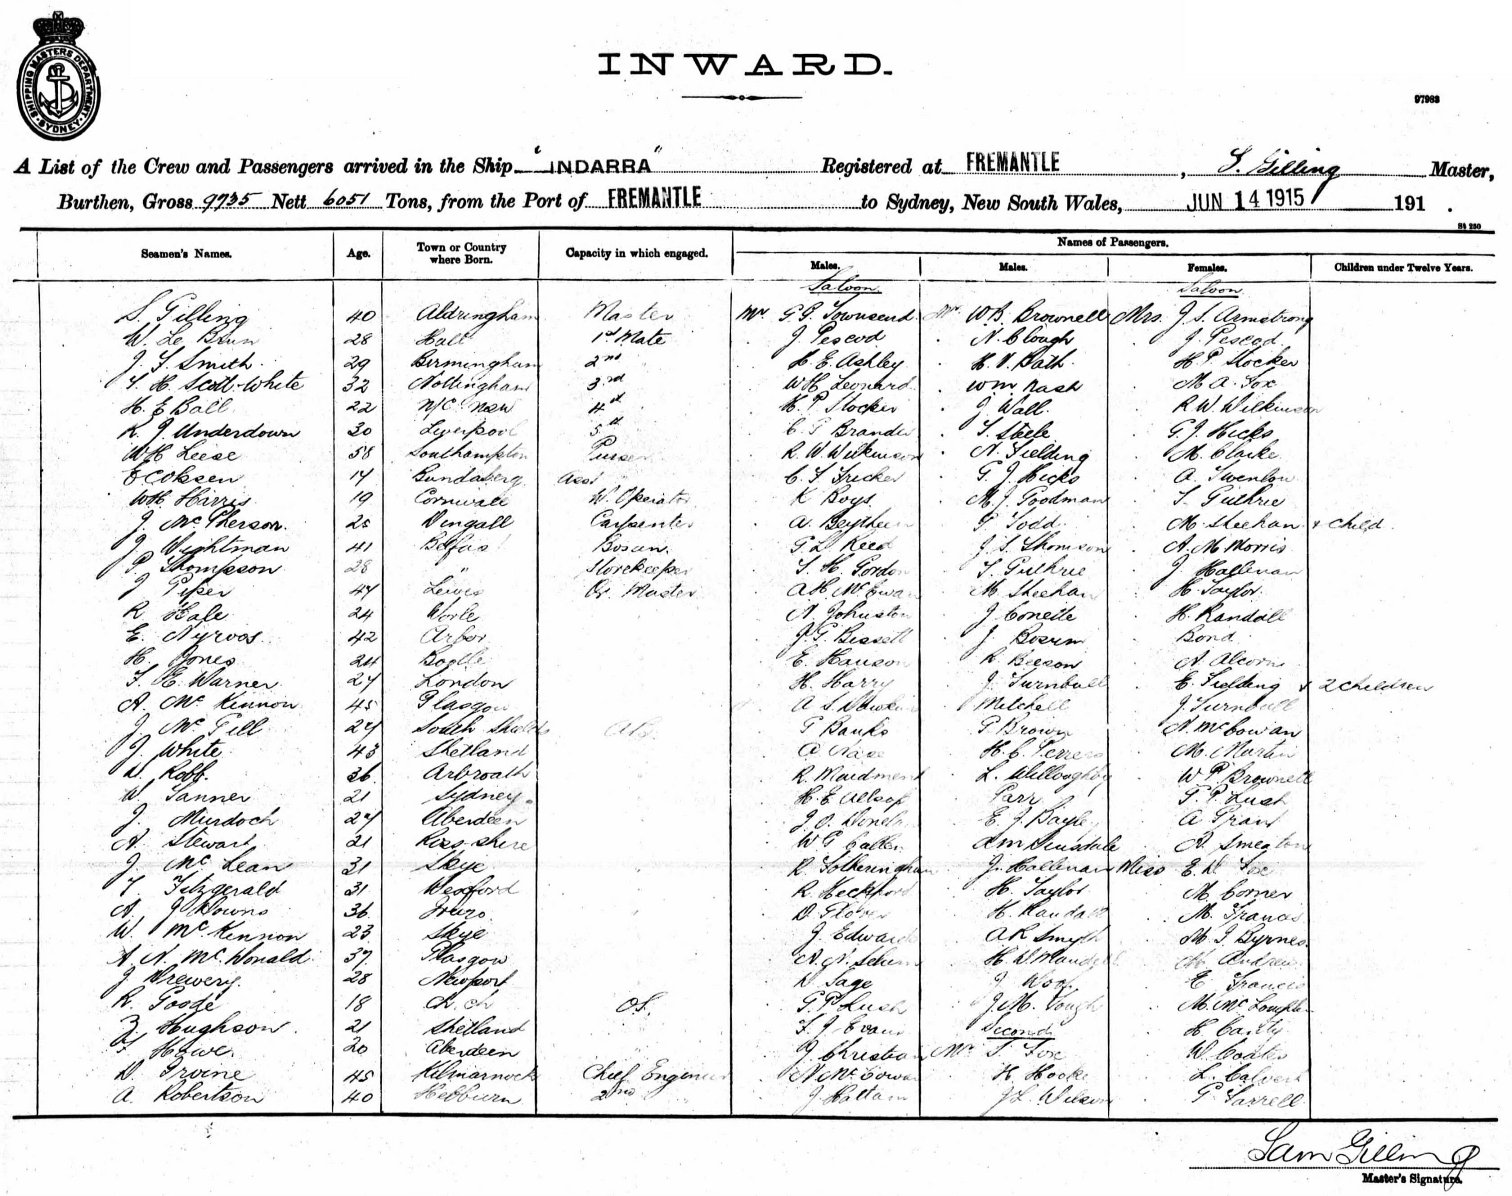 SHIPPING MASTERS DEPARTMENT SYDNEY
INWARD.
97983
A List of the Crew and Passengers arrived in the Ship "INDARRA" Registered at FREMANTLE, S. Gilling Master,
Burthen, Gross 9735 Nett 6051 Tons, from the Port of FREMANTLE to Sydney, New South Wales, JUN 14 1915 191 .
St 250
Seamen's Names. Age. Town or Country where Born. Capacity in which engaged. Names of Passengers.
Males. Males. Females. Children under Twelve Years.
Saloon Saloon
S. Gilling 40 Aldringham Master Mr G. Townsend Mr W.B. Brownell Mrs. J.S. Armstrong
W. Le Brun 28 Hall 1st Mate J Pescod N. Clough J. Pescod
J. S. Smith 29 Birmingham 2nd " H. E. Ashley H. V. Bath H P Stocker
S. H. Scott-White 32 Nottingham 3rd W H Leonard Wm Nash M A. Fox
H. E Ball 22 N/C. NSW 4th H. P. Stocker J Wall R W. Wilkinson
R J Underdown 30 Liverpool 5th C. G Brander S. Steele G J. Hicks
W H Leese 58 Southampton Purser R W Wilkinson N. Fielding M. Clarke
E Colsen 17 Bundaberg Asst " C. S Fricker G. J Hicks A
W H Harris 19 Cornwall W. Operator K Boys M J Goodman S. Guthrie
J. McPherson 25 Dingall Carpenter A. G Todd M. Sheehan & child.
J. Wightman 41 Belfast Bosun. G L Reed J. S. Thomson A. M Morris
P. Thompson 28 " Storekeeper S. H. Gordon S Guthrie J Hallenan
J Piper 47 Lewis Qr. Master A H. McEwan M. Sheehan H. Taylor.
R Hale 24 N Johnston J Conette H. Randall
E. Nyroos 42 Arbor J. G. Bissett J. Bond
H. Jones 24 Bootle E. Hanson R Beeson A Alcorn
F. E. Warner 27 London H Harry J. Turnbull E. Fielding & 2 children
A. McKinnon 45 Glasgow A S Mitchell J. Turnbull
J. McGill 27 South Shields A.B. G Banks G Brown A. McCowan
J. White 43 Shetland H. C. M. Martin
D. Robb. 36 Arbroath R. Maidment L. Willoughby W P. Brownell
W. Tanner 21 Sydney. H. E Allsop Parr G. P. Lush
J. Murdoch 27 Aberdeen J. E. J. Bayley A Grant
A Stewart 21 Ross-shire W G A Smeaton
J. McLean 31 Skye R. Fotheringham J. Hallenan Miss E. Fox
T. Fitzgerald 31 Wexford R Heckford H. Taylor M. Corner
A. J Downs 36 Truro. D. Glover H Randall M. Francis
W. McKinnon 23 Skye J. Edwards A R Smyth M. J. Byrnes.
A. N. McDonald 37 Glasgow A. N. H. Andrew
J Drewery. 28 Newport D Sage J Wood E Francis
R. Goode 18 Ch. Ch OS. G. P Lush J. M. Gough M.
J. Hughson. 21 Shetland F. J Evans Second H Canty
J Howe 20 Aberdeen J Christian Mr S. Fox W Coates
D. Irvine 45 Kilmarnock Chief Engineer N McCowan H. Hooke L. Calvert
A. Robertson 40 Hebburn 2nd " J Hattam J L. Wilson G Farrell
Sam Gilling
Master's Signature.